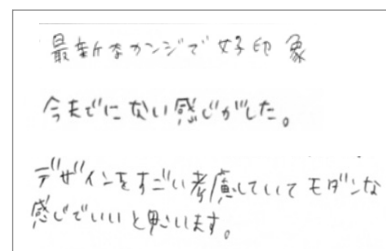 最新なカンジで好印象
今までにない感じがした。
デザインをすごい考慮していてモダンな
感じでいいと思います。